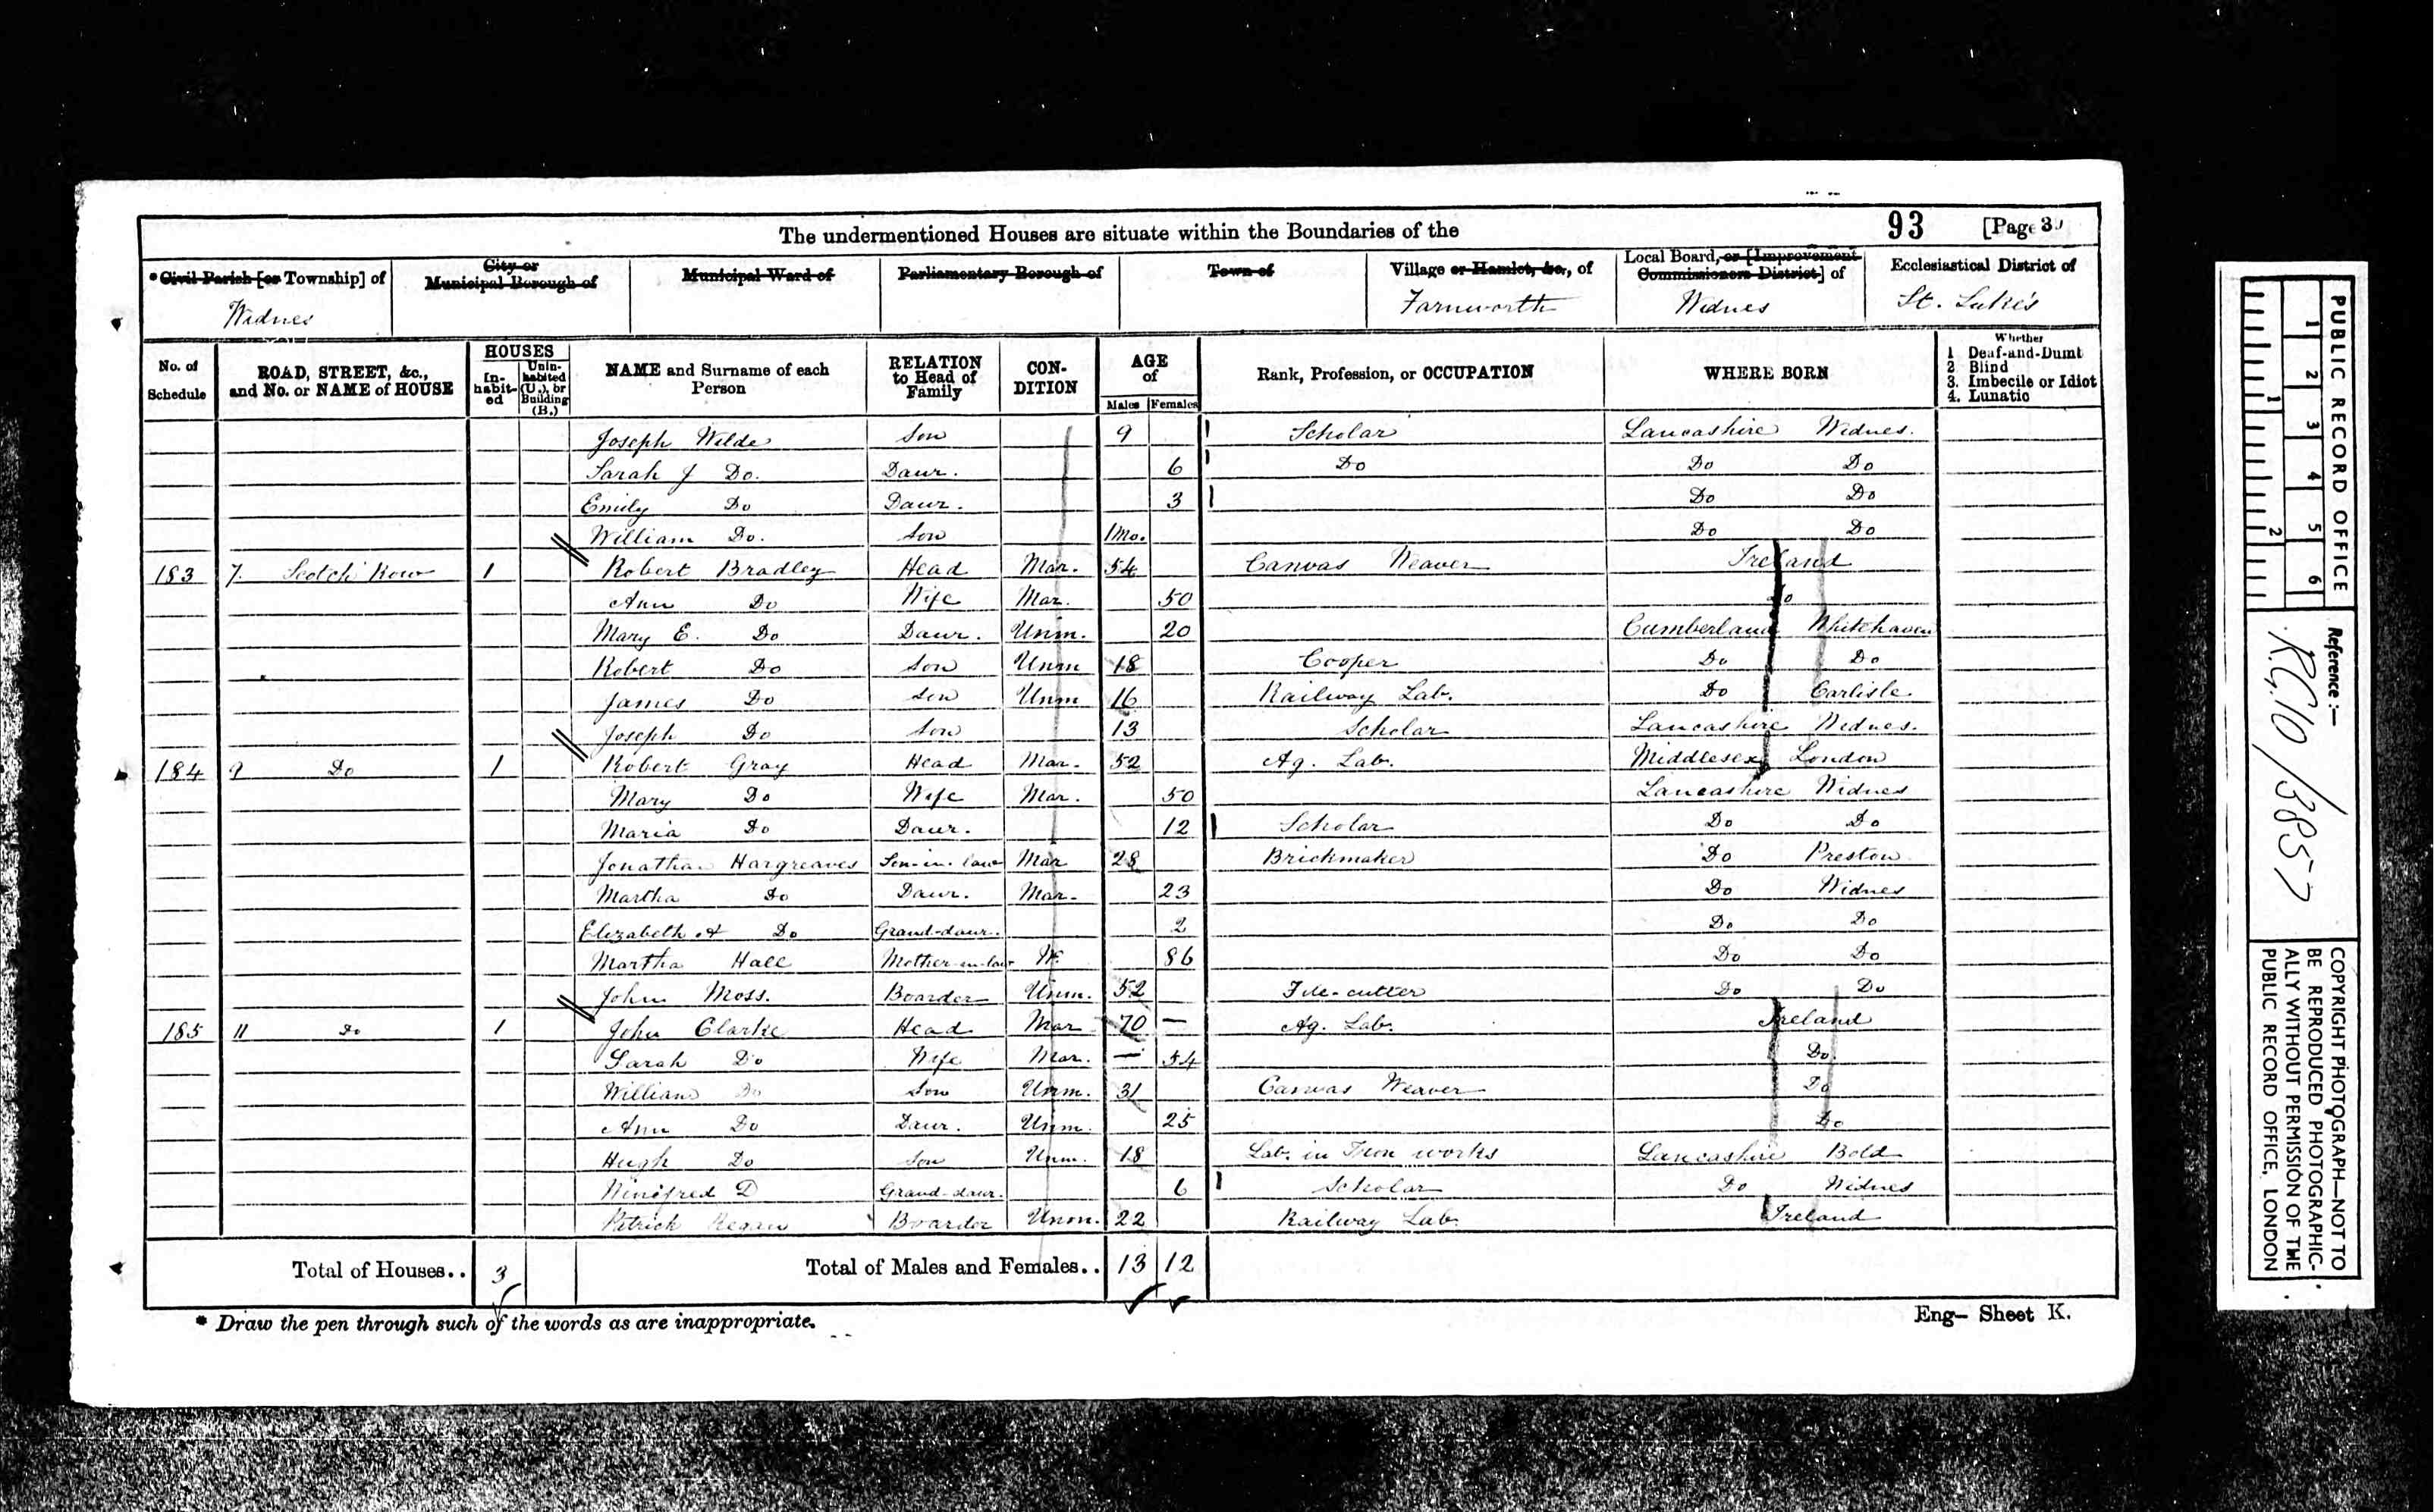 The undermentioned Houses are situate within the Boundaries of the 93 [Page 3
*Civil Parish [or Township] of City or Municipal Borough of Municipal Ward of Parliamentary Borough of Town of Village or Hamlet, &c., of Local Board, or [Improvement Commissioners District] of Ecclesiastical District of
Widnes Farnworth Widnes St. Luke's
No. of Schedule ROAD, STREET, &c., and No. or NAME of HOUSE HOUSES Inhabited Uninhabited (U.), or Building (B.) NAME and Surname of each Person RELATION to Head of Family CONDITION AGE of Males Females Rank, Profession, or OCCUPATION WHERE BORN Whether 1 Deaf-and-Dumb 2 Blind 3. Imbecile or Idiot 4. Lunatic
Joseph Wilde Son 9 Scholar Lancashire Widnes.
Sarah J Do. Daur. 6 Do Do Do
Emily Do Daur. 3 Do Do
William Do. Son 1Mo. Do Do
183 7. Scotch Row 1 Robert Bradley Head Mar. 54 Canvas Weaver Ireland
Ann Do Wife Mar. 50 Do
Mary E. Do Daur. Unm. 20 Cumberland Whitehaven
Robert Do Son Unm 18 Cooper Do Do
James Do Son Unm 16 Railway Lab. Do Carlisle
Joseph Do Son 13 Scholar Lancashire Widnes.
184 9 Do 1 Robert Gray Head Mar. 52 Ag. Lab. Middlesex London
Mary Do Wife Mar. 50 Lancashire Widnes
Maria Do Daur. 12 Scholar Do Do
Jonathan Hargreaves Son-in-law Mar 28 Brickmaker Do Preston
Martha Do Daur. Mar. 23 Do Widnes
Elizabeth A Do Grand-daur. 2 Do Do
Martha Hall Mother-in-law W. 86 Do Do
John Moss. Boarder Unm. 52 File-cutter Do Do
185 11 Do 1 John Clarke Head Mar 70 — Ag. Lab. Ireland
Sarah Do Wife Mar. — 54 Do.
William Do Son Unm. 31 Canvas Weaver Do
Ann Do Daur. Unm. 25 Do
Hugh Do Son Unm. 18 Lab. in Iron works Lancashire Bold
Winifred D Grand-daur. 6 Scholar Do Widnes
Patrick Regan Boarder Unm. 22 Railway Lab. Ireland
Total of Houses.. 3 Total of Males and Females.. 13 12
* Draw the pen through such of the words as are inappropriate.
Eng– Sheet K.
PUBLIC RECORD OFFICE
1 2 3 4 5 6
1 2
Reference:—
R.G.10/3857
COPYRIGHT PHOTOGRAPH—NOT TO
BE REPRODUCED PHOTOGRAPHIC-
ALLY WITHOUT PERMISSION OF THE
PUBLIC RECORD OFFICE, LONDON